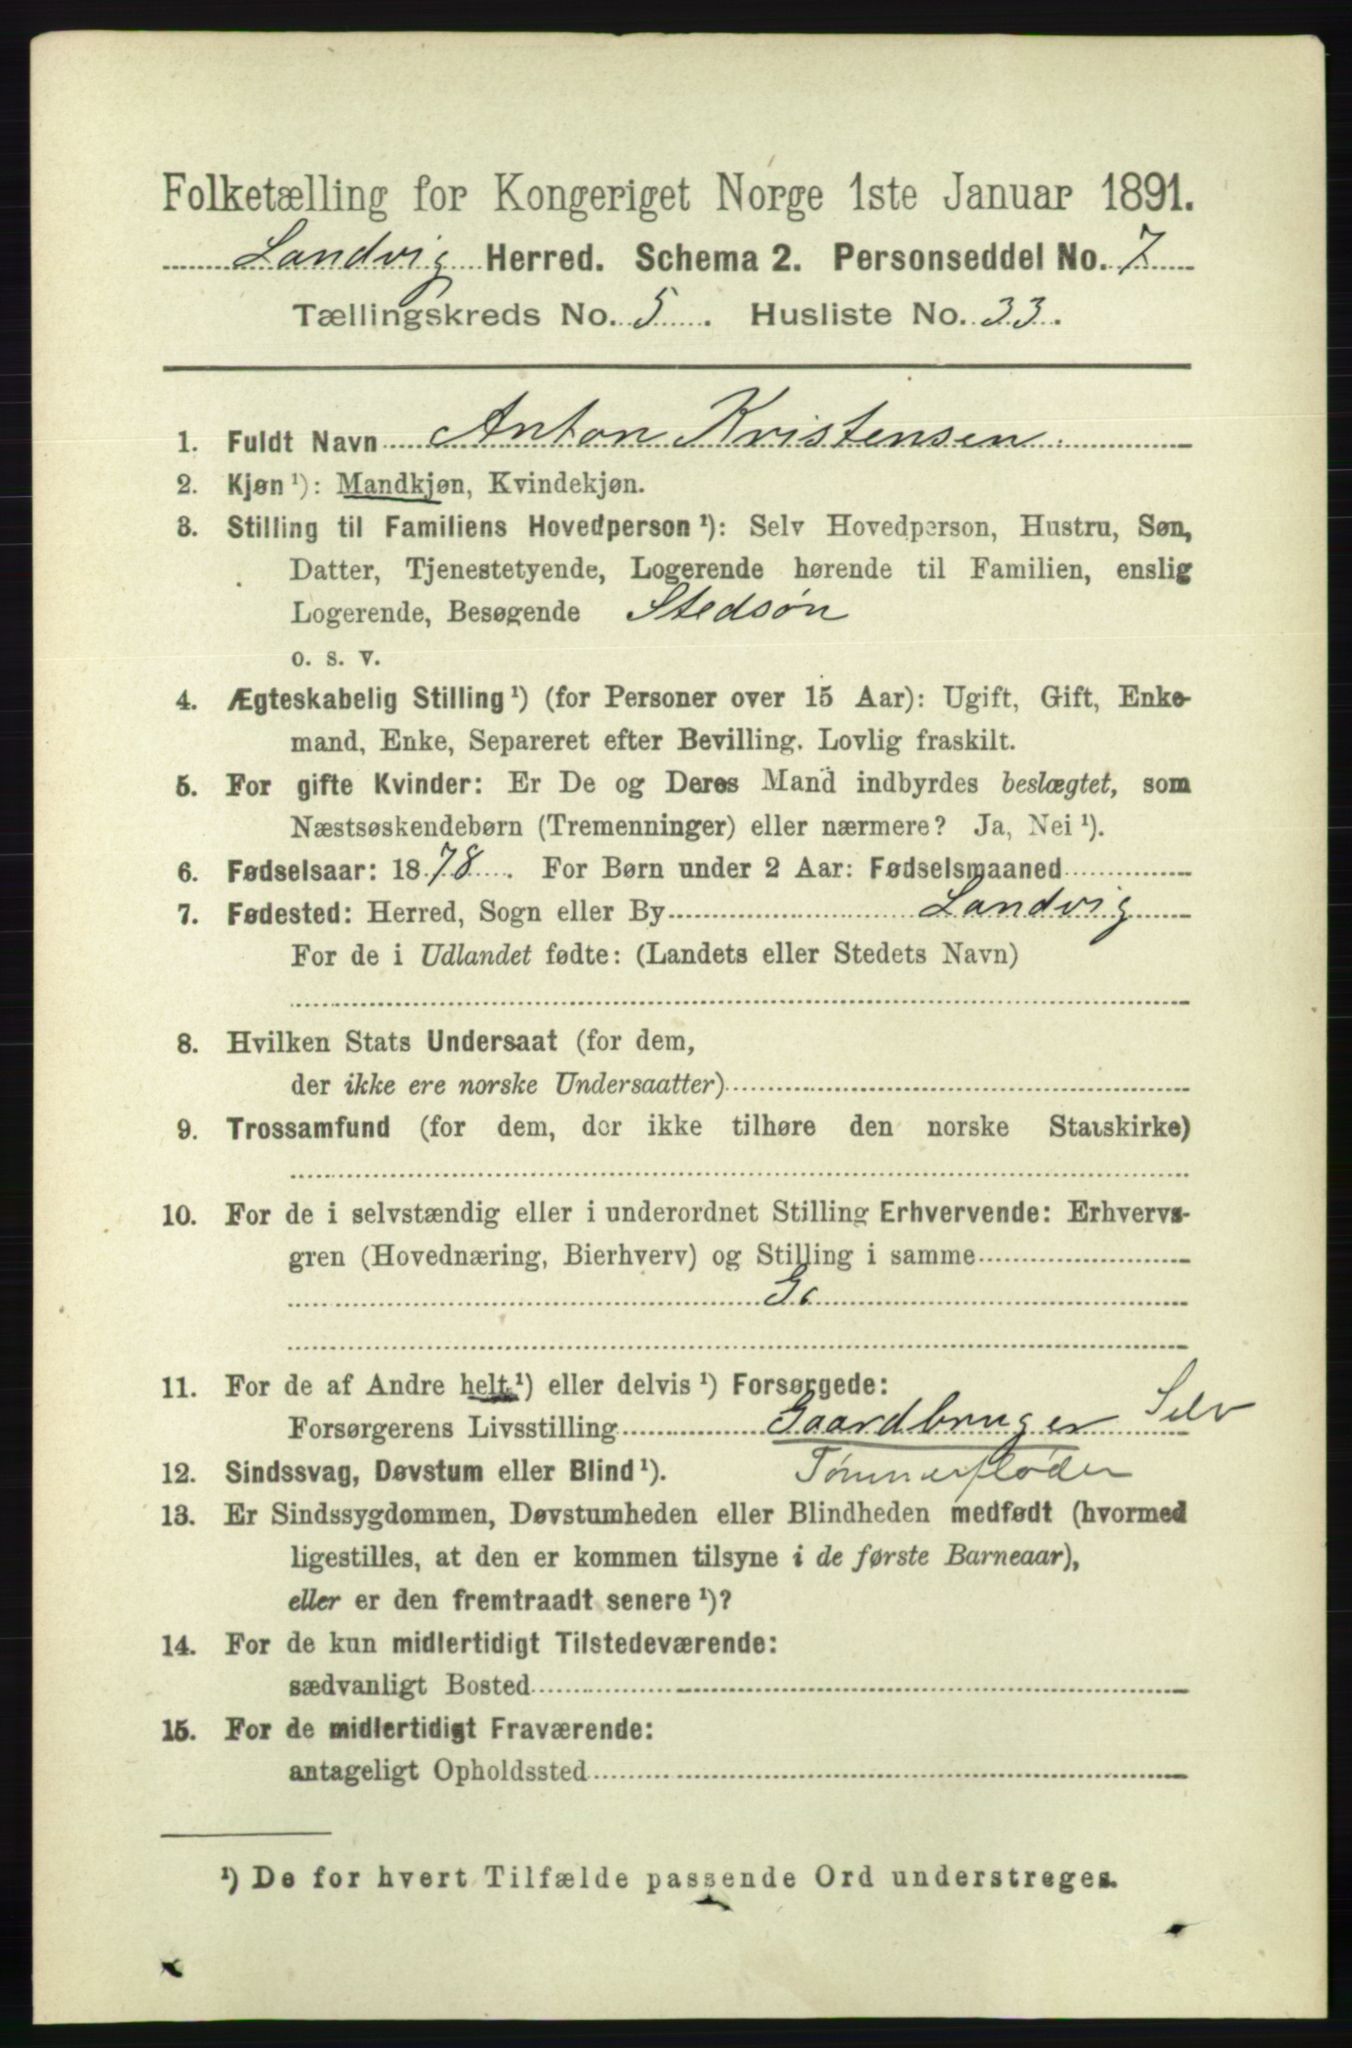 Folketælling for Kongeriget Norge 1ste Januar 1891.
Landvig Herred. Schema 2. Personseddel No. 7
Tællingskreds No. 5. Husliste No. 33.
1. Fuldt Navn Anton Kristensen
2. Kjøn ¹): Mandkjøn, Kvindekjøn.
3. Stilling til Familiens Hovedperson ¹): Selv Hovedperson, Hustru, Søn,
Datter, Tjenestetyende, Logerende hørende til Familien, enslig
Logerende, Besøgende Stedsøn
o. s. v.
4. Ægteskabelig Stilling ¹) (for Personer over 15 Aar): Ugift, Gift, Enke-
mand, Enke, Separeret efter Bevilling. Lovlig fraskilt.
5. For gifte Kvinder: Er De og Deres Mand indbyrdes beslægtet, som
Næstsøskendebørn (Tremenninger) eller nærmere? Ja, Nei ¹).
6. Fødselsaar: 1878. For Børn under 2 Aar: Fødselsmaaned
7. Fødested: Herred, Sogn eller By Landvig
For de i Udlandet fødte: (Landets eller Stedets Navn)
8. Hvilken Stats Undersaat (for dem,
der ikke ere norske Undersaatter)
9. Trossamfund (for dem, der ikke tilhøre den norske Statskirke)
10. For de i selvstændig eller i underordnet Stilling Erhvervende: Erhvervs-
gren (Hovednæring, Bierhverv) og Stilling i samme
11. For de af Andre helt ¹) eller delvis ¹) Forsørgede:
Forsørgerens Livsstilling Gaardbruger Selv
12. Sindssvag, Døvstum eller Blind ¹). Tømmerfløder
13. Er Sindssygdommen, Døvstumheden eller Blindheden medfødt (hvormed
ligestilles, at den er kommen tilsyne i de første Barneaar),
eller er den fremtraadt senere ¹)?
14. For de kun midlertidigt Tilstedeværende:
sædvanligt Bosted
15. For de midlertidigt Fraværende:
antageligt Opholdssted
¹) De for hvert Tilfælde passende Ord understreges.